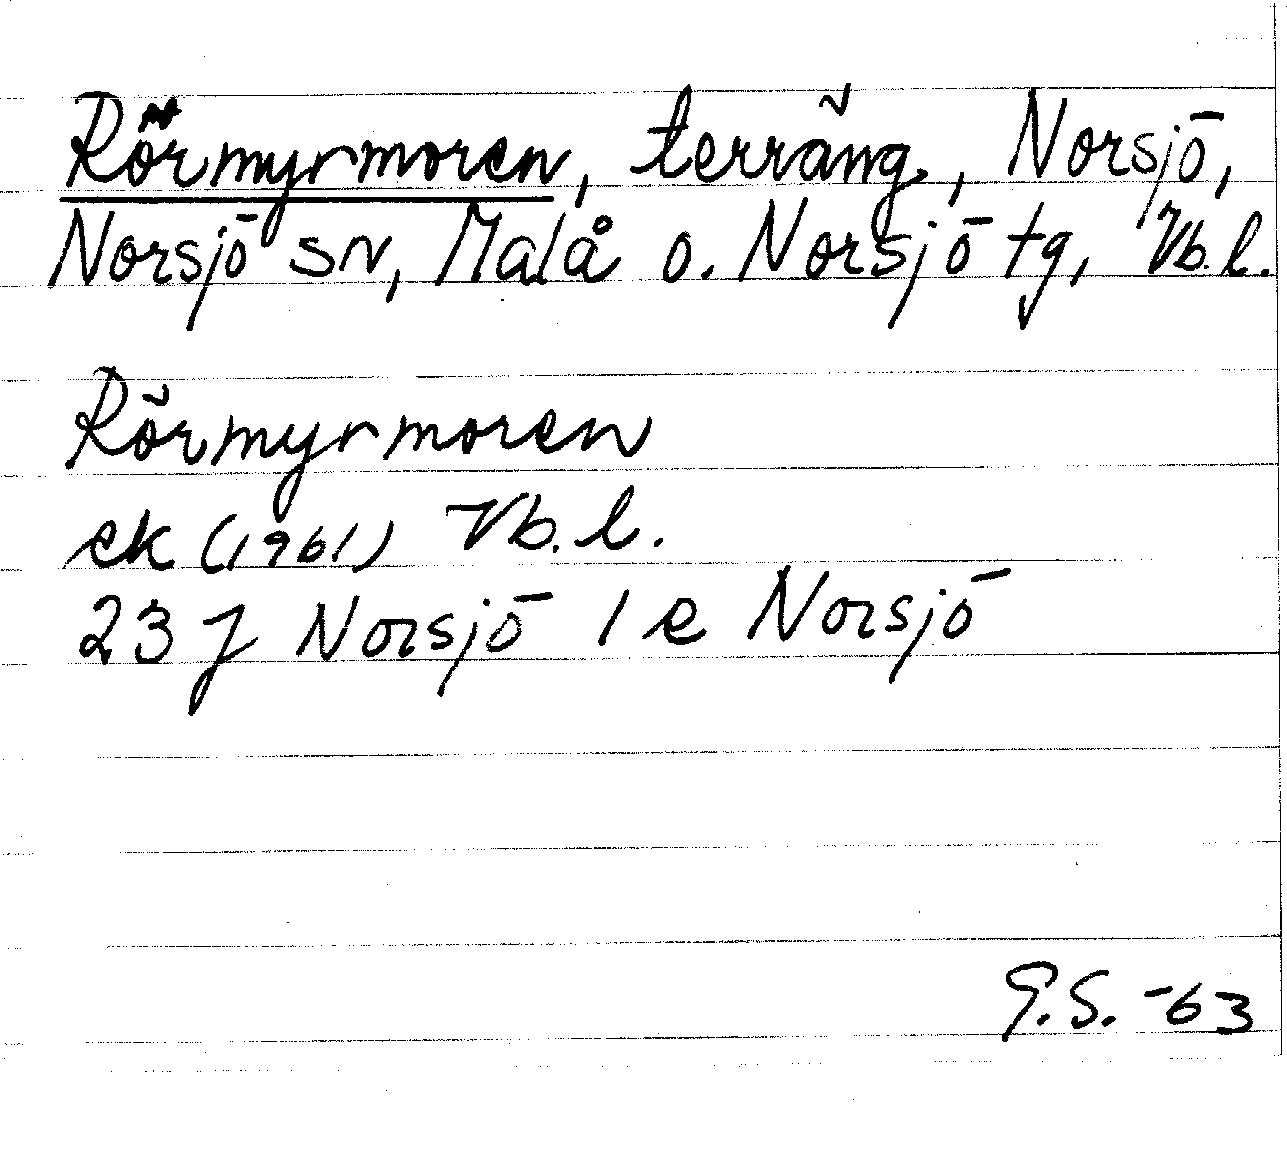 Rörmyrmoren, terräng, Norsjö,
Norsjö sn, Malå o. Norsjö tg, Vb.l.
Rörmyrmoren
ek (1961) Vb.l.
23 J Norsjö 1 e Norsjö
G.S. -63